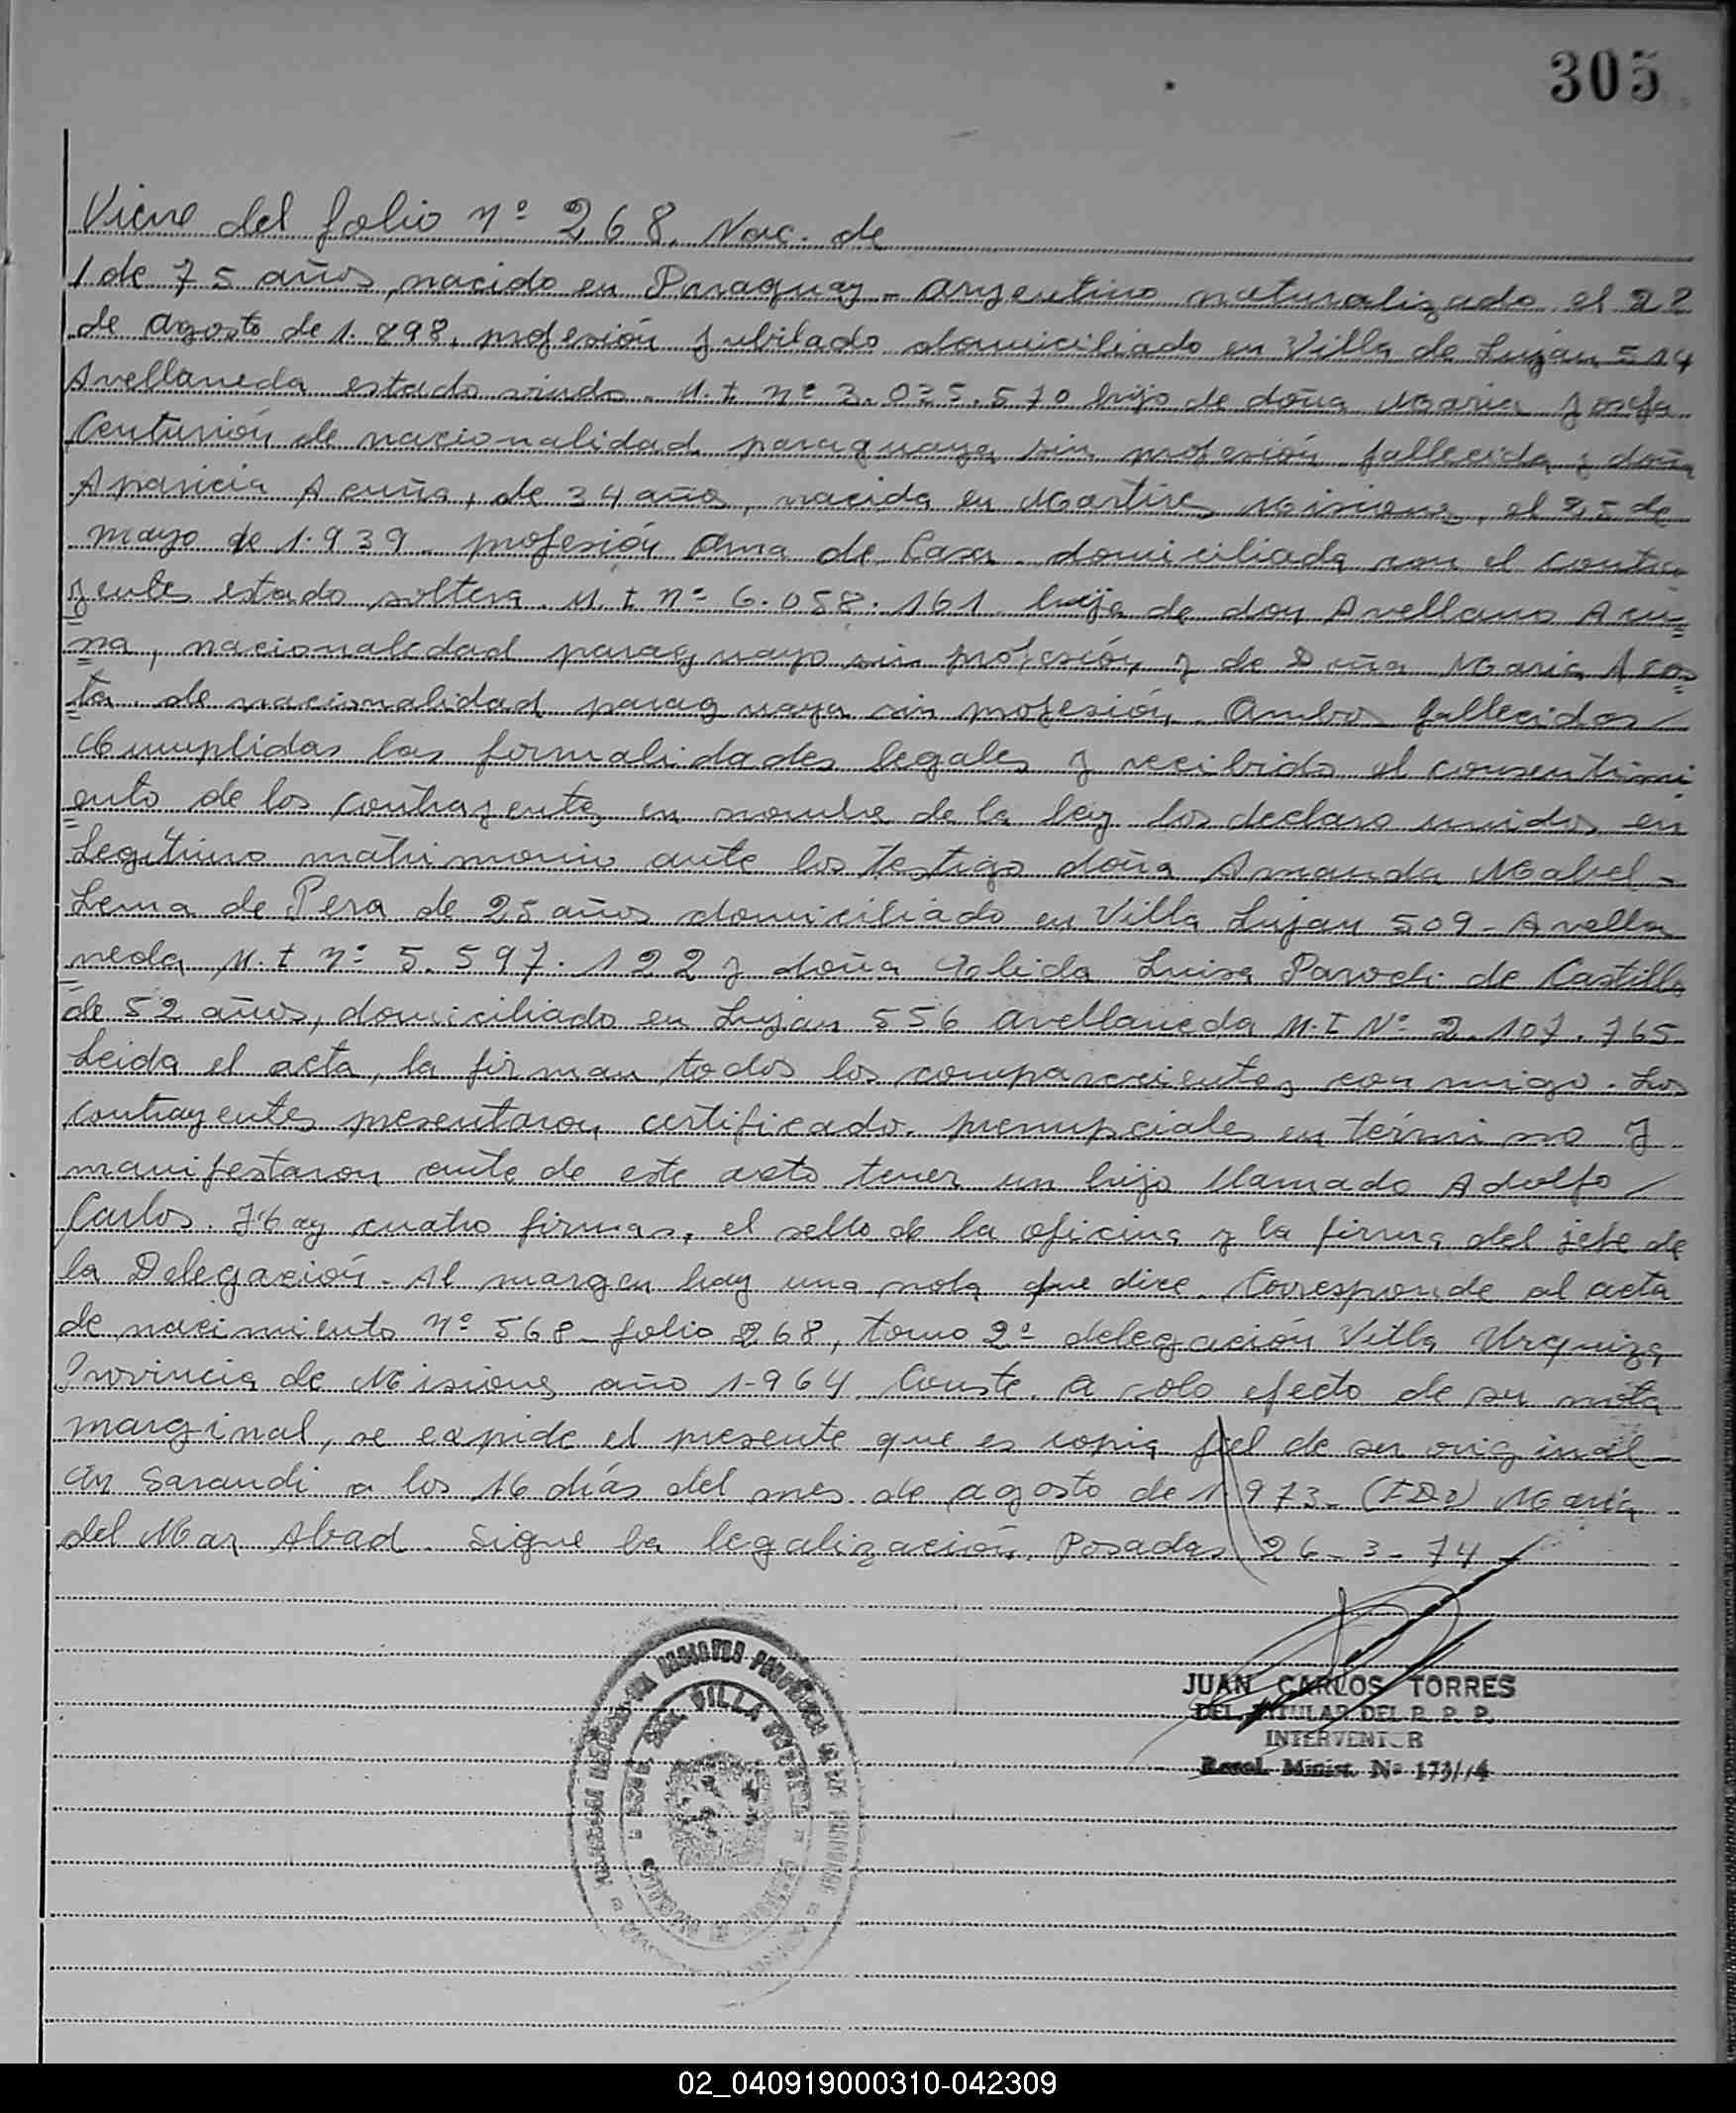 305
Viene del folio Nº 268. Nac. de
1 de 75 años, nacido en Paraguay - argentino naturalizado el 22
de agosto de 1.898, profesión jubilado domiciliado en Villa de Luján 514
Avellaneda estado viudo. M.I nº 3.035.570 hijo de doña Maria Josefa
Centurión de nacionalidad paraguaya sin profesión fallecida y doña
Aparicia Acuña, de 34 años, nacida en Martires Misiones, el 25 de
mayo de 1.939. profesión Ama de Casa. domiciliada con el contra
yentes estado soltera. M. I nº 6.058.161 hija de don Avellano Acu=
=na, nacionalidad paraguayo sin profesión y de Doña Maria Acos=
=ta. de nacionalidad paraguaya sin profesión. Ambos fallecidos/
Cumplidas las formalidades legales y recibido el consentimi
=ento de los contrayentes en nombre de la ley los declaro unidos en
Legitimo matrimonio ante los testigo doña Amanda Mabel -
Lema de Pera de 25 años domiciliado en Villa Lujan 509 - Avella
=neda M. I Nº 5.597.122 y doña Luisa Parodi de Castillo
de 52 años, domiciliado en Lujan 556 avellaneda M.I Nº 2.107.765
Leida el acta, la firman todos los comparecientes con migo. Los
contrayentes presentaron certificado. prenupciales en término y
manifestaron ante de este acto tener un hijo llamado Adolfo /
Carlos. Hay cuatro firmas, el sello de la oficina y la firma del jefe de
la Delegación. Al margen hay una nota que dice. Corresponde al acta
de nacimiento Nº 568 folio 268, tomo 2º delegación Villa Urquiza
Provincia de Misiones año 1.964. Conste. A solo efecto de su nota
marginal, se expide el presente que es copia fiel de su original
En Sarandi a los 16 días del mes de agosto de 1973 - (FDO) Maria
del Mar Abad. Sigue la legalización. Posadas 26-3-74
JUAN CARLOS TORRES
DEL. TITULAR DEL R. P. P.
INTERVENTOR
Resol. Minist. Nº 173/74
VILLA
02_040919000310-042309